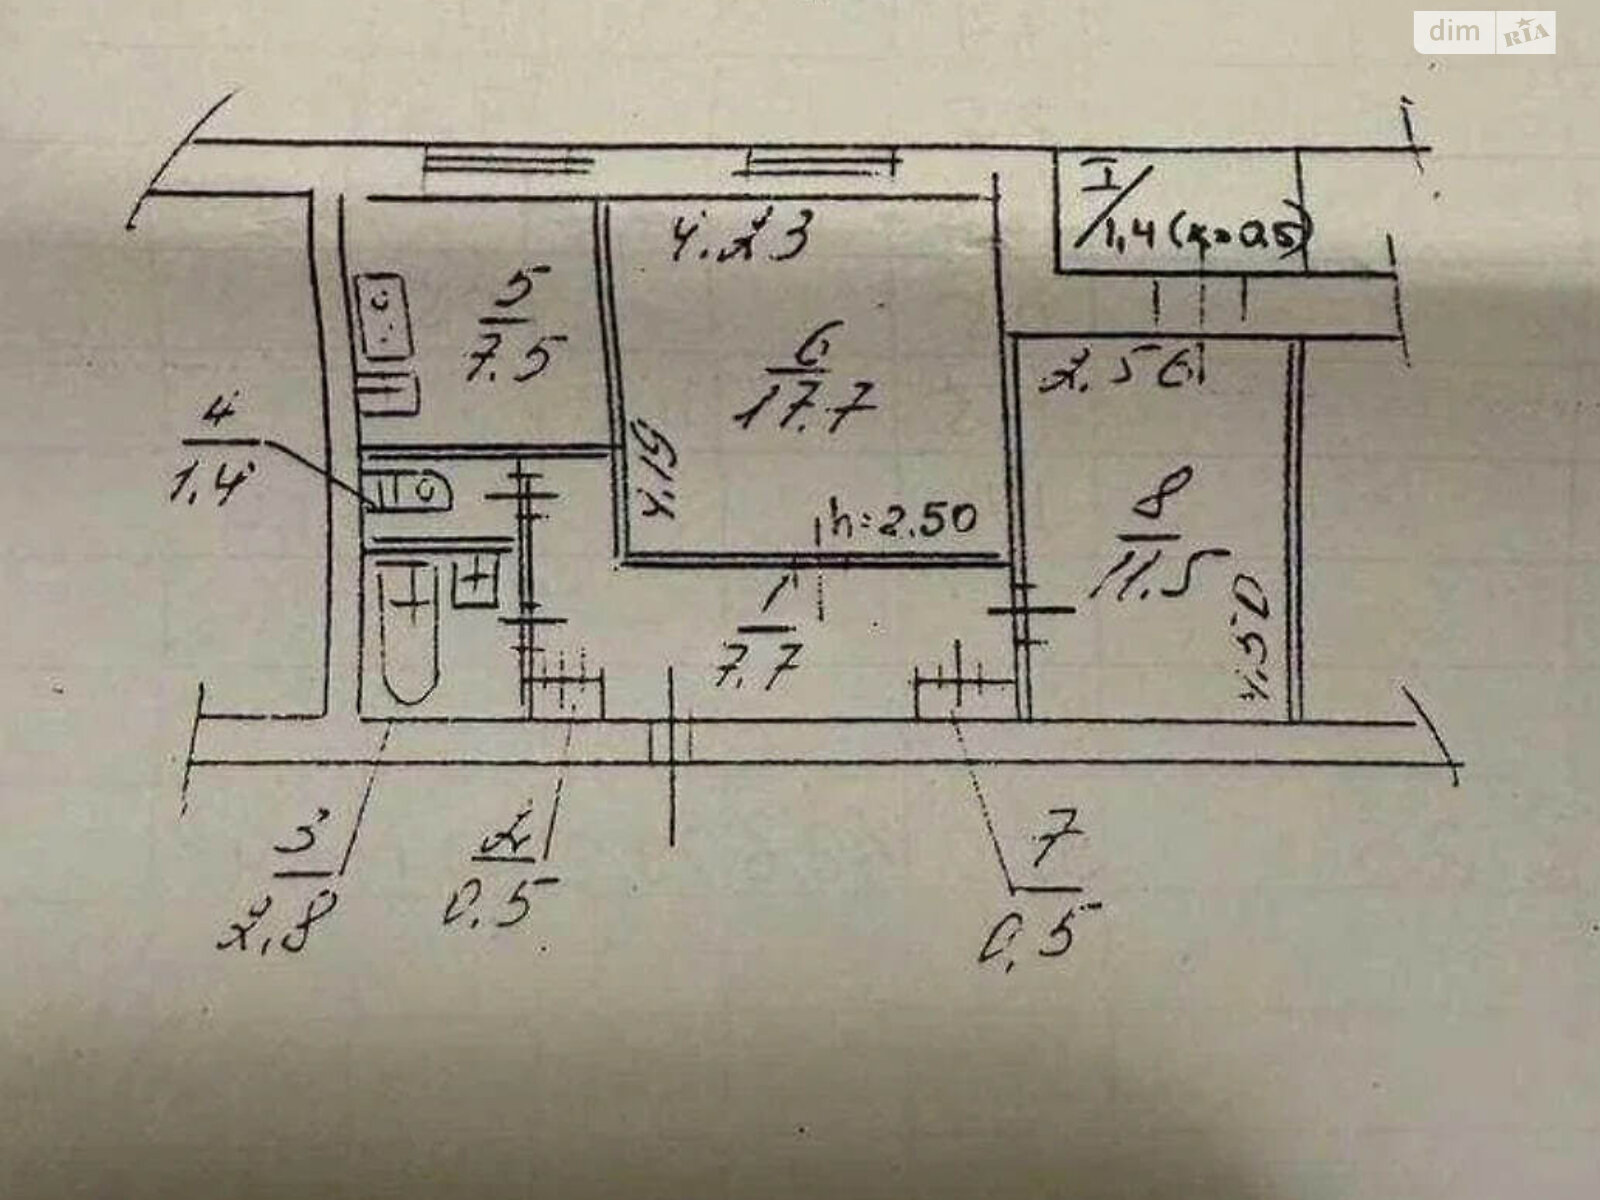 dim RIA
I/1,4 (к=0,5)
4.23
5
7.5
6
17.7
2.56
4
1,4
4.19
h=2.50
8
11.5
4.50
1
7.7
3
2,8
2
0.5
7
0,5